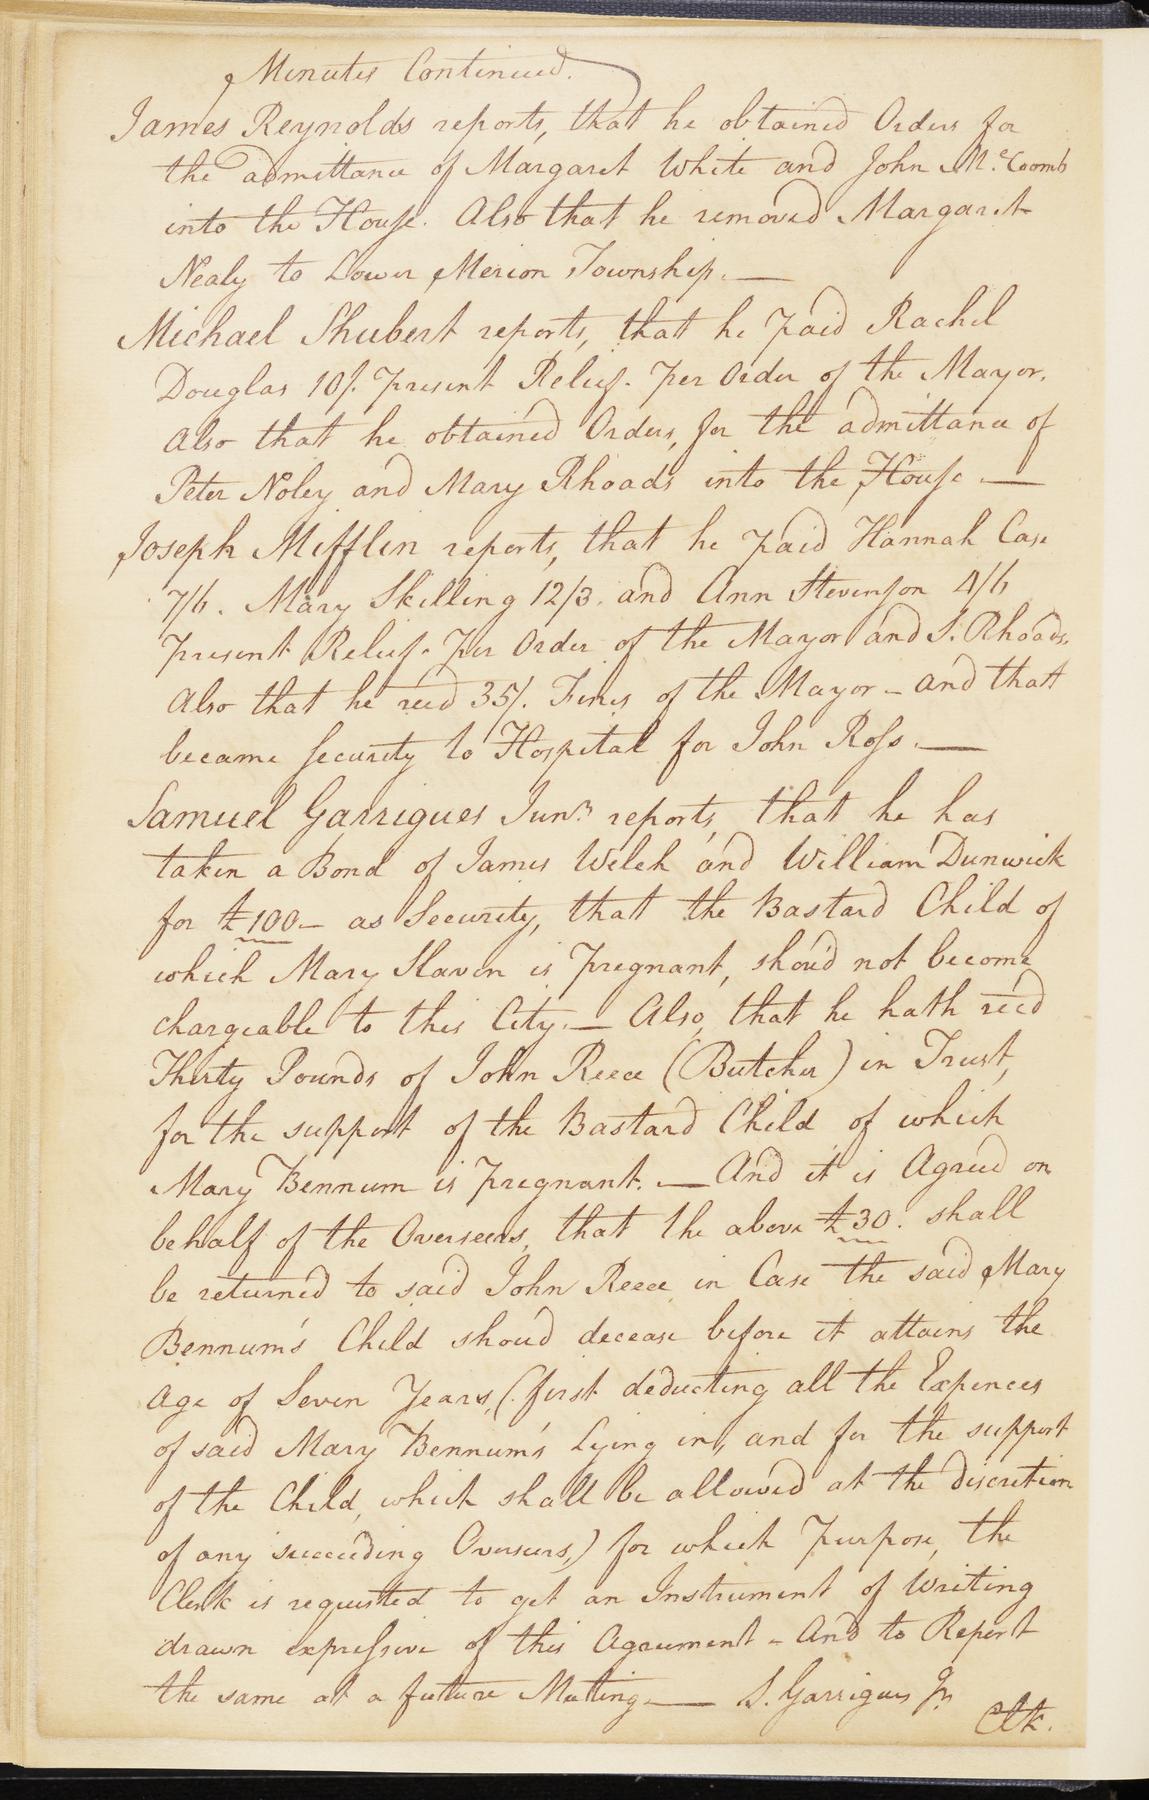 Minutes Continued.
James Reynolds reports, that he obtained Orders for
the admittance of Margaret White and John Mc. Coomb
into the House. Also that he removed Margaret
Nealy to Lower Merion Township. —
Michael Shubert reports, that he paid Rachel
Douglas 10/. present Relief. per Order of the Mayor.
Also that he obtained Orders, for the admittance of
Peter Noley and Mary Rhoads into the House —
Joseph Mifflin reports, that he paid Hannah Case
7/6. Mary Skilling 12/3. and Ann Stevenson 4/6
present Relief. per Order of the Mayor and S. Rhoads.
Also that he rec'd 35/. Fines of the Mayor - and that
became Security to Hospital for John Ross. —
Samuel Garrigues Junr. reports, that he has
taken a Bond of James Welch and William Dunwick
for £100 - as Security, that the Bastard Child of
which Mary Slaven is pregnant, shou'd not become
chargeable to this City. — Also, that he hath rec'd
Thirty Pounds of John Reece (Butcher) in Trust,
for the support of the Bastard Child of which
Mary Bennum is pregnant. — And it is Agreed on
behalf of the Overseers, that the above £30. shall
be returned to said John Reece in Case the said Mary
Bennum's Child shou'd decease before it attains the
Age of Seven Years, (first deducting all the Expences
of said Mary Bennum's Lying in, and for the support
of the Child, which shall be allowed at the discretion
of any succeeding Overseers,) for which purpose, the
Clerk is requested to get an Instrument of Writing
drawn expressive of this Agreement - And to Report
the same at a future Meeting — S. Garrigues Jr.
Clk.